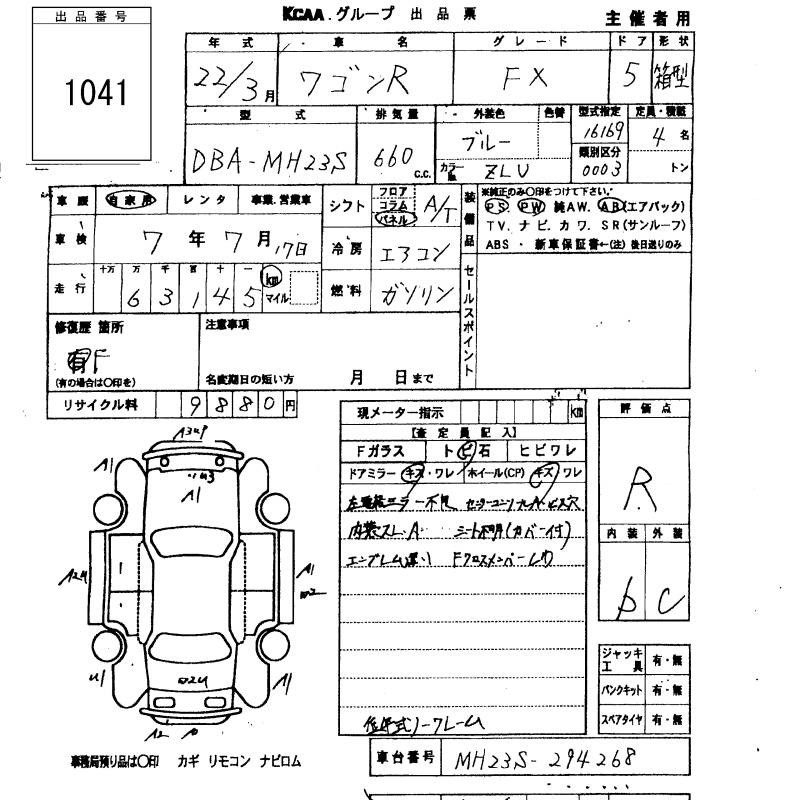 出品番号
1041
KCAA.グループ 出品票
主催者用
年式 車名 グレード ドア 形状
22/3月 ワゴンR FX 5 箱型
型式 排気量 外装色 色替 型式指定 定員・積載
DBA-MH23S 660 c.c. ブルー 16169 4名
カラーNo. ZLU 類別区分 0003 トン
車歴 自家用 レンタ 事業、営業車
車検 7年7月17日
走行 十万 万 千 百 十 一
63145 km マイル
シフト フロア コラム パネル A/T
冷房 エアコン
燃料 ガソリン
装備品
※純正のみ○印をつけて下さい。
PS. PW. 純AW. AB(エアバック)
TV. ナビ. カワ. SR(サンルーフ)
ABS ・ 新車保証書←(注) 後日送りのみ
セールスポイント
修復歴 箇所
有F
(有の場合は○印を)
注意事項
名変期日の短い方 月 日まで
リサイクル料 9880円
現メーター指示 km
【査定員記入】
Fガラス トビ石 ヒビワレ
ドアミラー キズ・ワレ ホイール(CP) キズ ワレ
内装スレ、A シート不明(カバー付)
エンブレム違い Fクロスメンバー
評価点
R
内装 外装
b C
A1
A1
A1
A1
ジャッキ 工具 有・無
パンクキット 有・無
スペアタイヤ 有・無
事務局預り品は○印 カギ リモコン ナビロム
車台番号 MH23S-294268